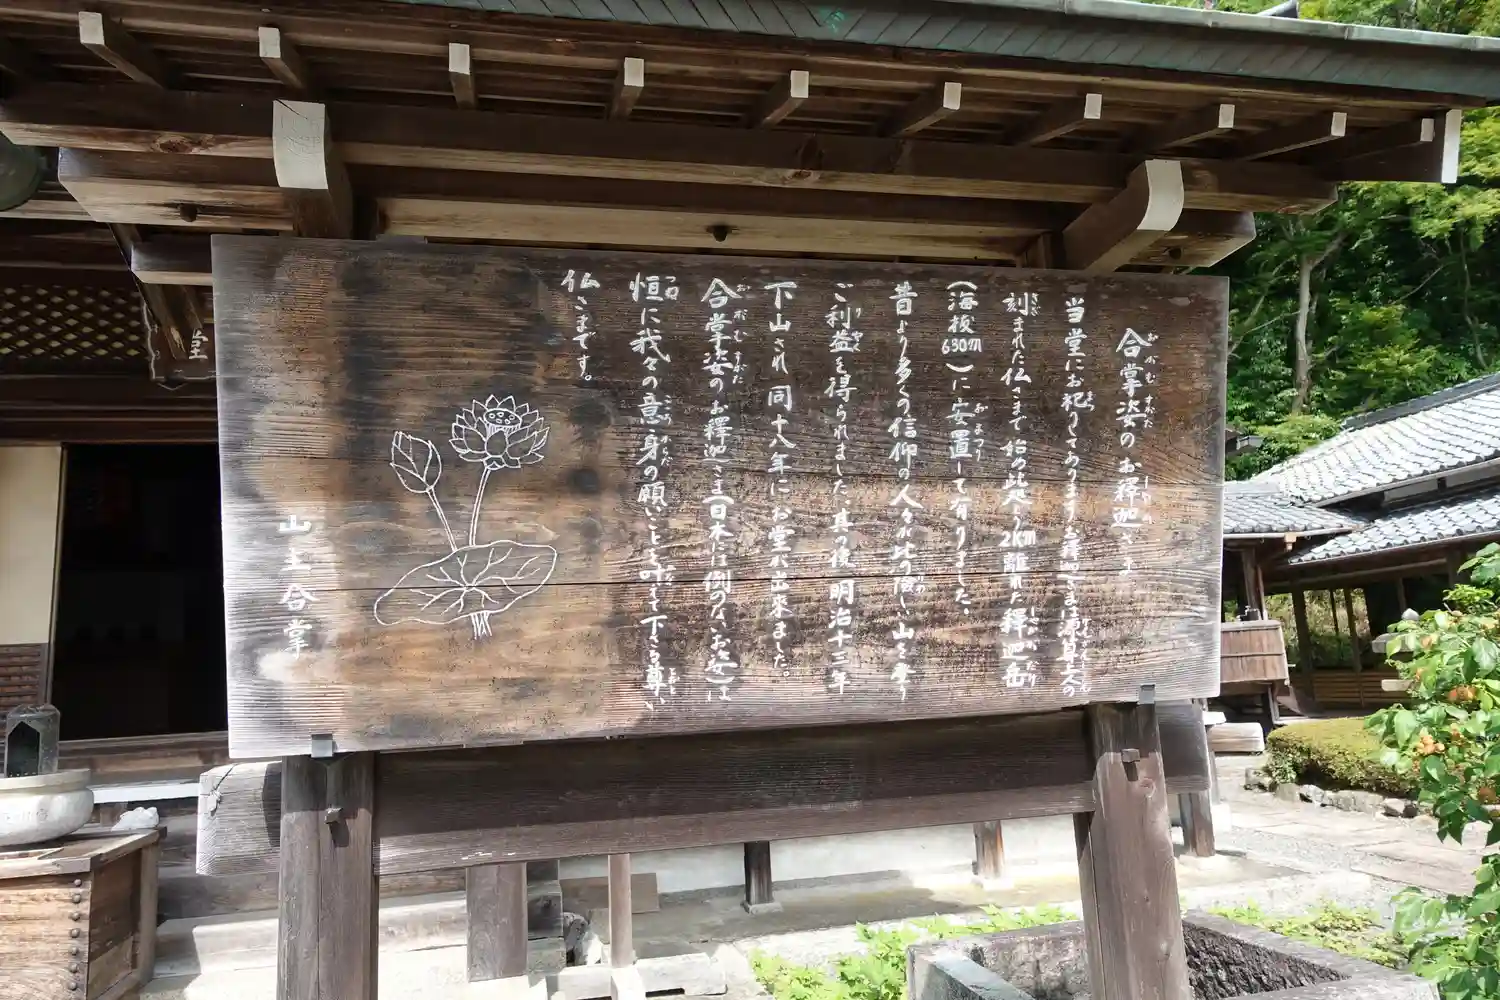 合掌姿のお釋迦さま
当堂にお祀りしてありますお釋迦さまは源算上人の
刻まれた仏さまで始め此処より2km離れた釋迦岳
(海抜630m)に安置して有りました。
昔より多くの信仰の人々が此の険しい山を登り
ご利益を得られました其の後明治十三年
下山され同十八年にお堂が出来ました。
合掌姿のお釋迦さま(日本には例のないお姿)は
恒に我々の意身の願いごとを叶えて下さる尊い
仏さまです。
山主合掌
堂